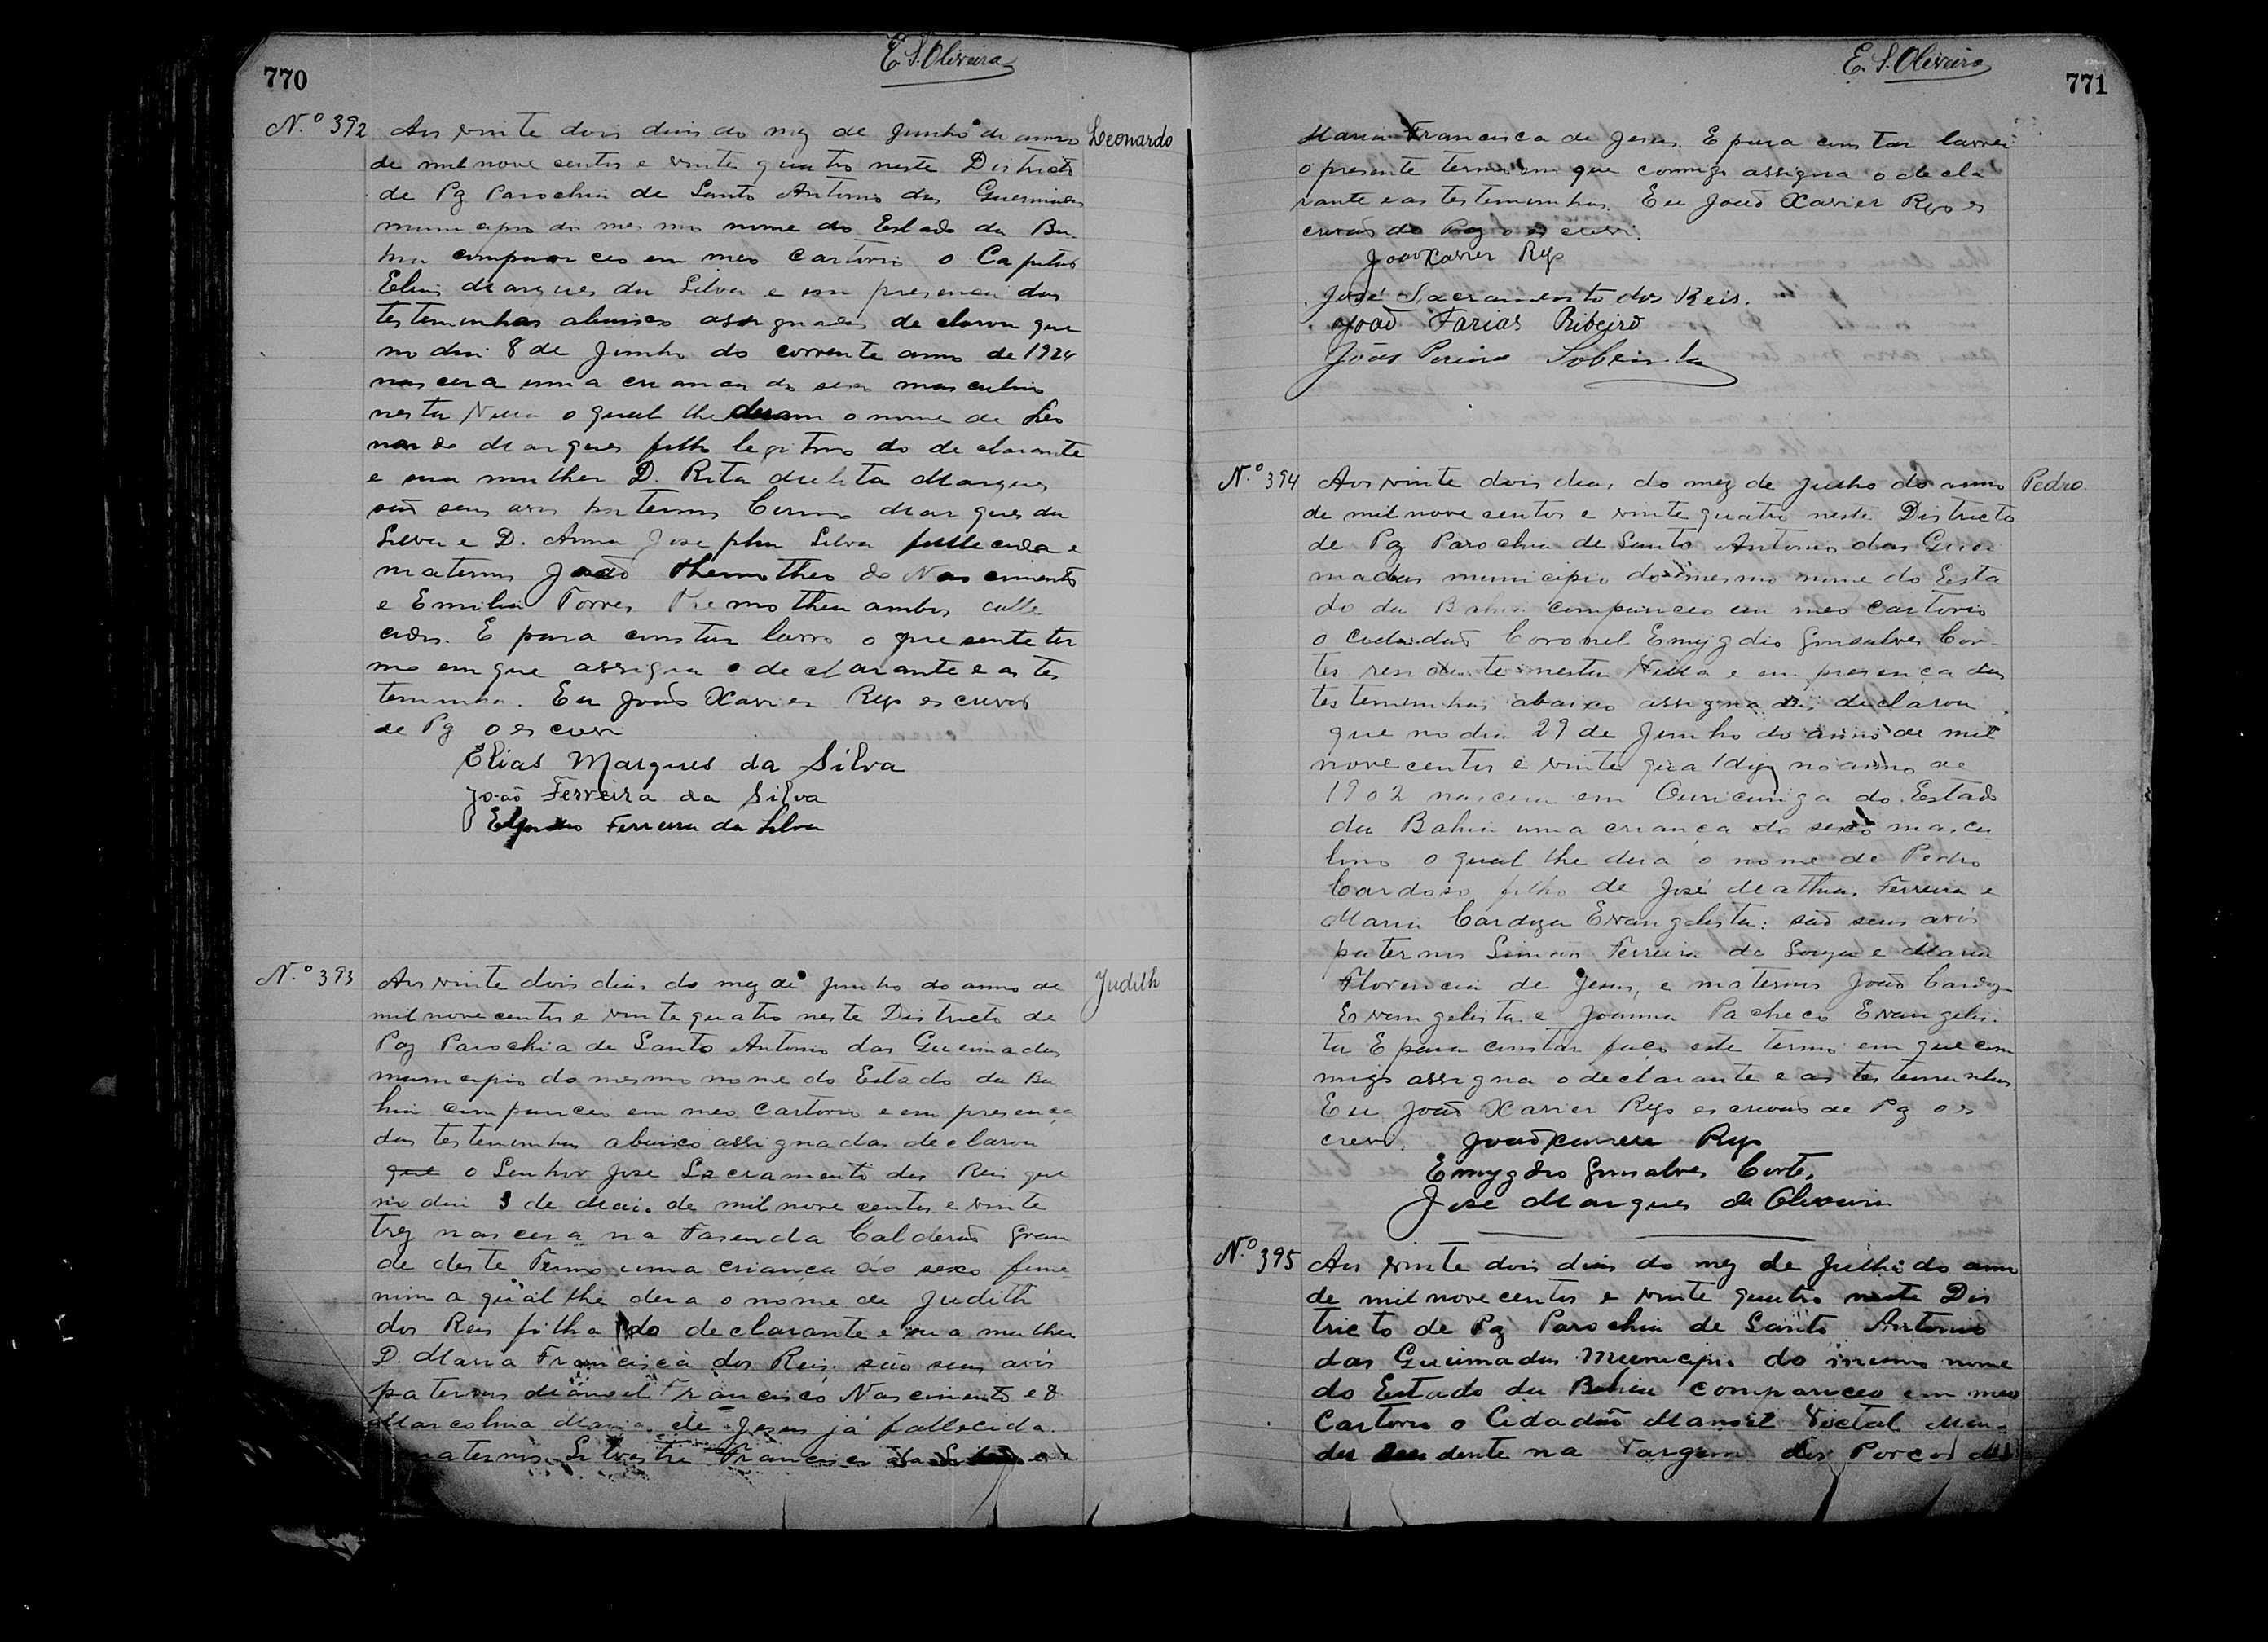 770
E. S. Oliveira
N.º 392 Aos vinte dois dias do mez de Junho de anno Leonardo
de mil nove centos e vinte quatro neste Districto
de Paz Parochia de Santo Antonio das Queimadas
municipio do mesmo nome do Estado da Ba
hia compareceo em meo Cartorio o Capitão
Elias Marques da Silva e em presença das
testemunhas abaixo assignadas declarou que
no dia 8 de Junho do corrente anno de 1924
nascera uma creança do sexo masculino
nesta Villa o qual lhe deram o nome de Leo
nardo Marques filho legitimo do declarante
e sua mulher D. Rita Marques
são seus avos paternos Marques da
Silva e D. Anna Josepha Silva fallecida e
maternos João Themotheo do Nascimento
e Emilia Torres Themothea ambos falle
cidos. E para constar lavro o presente ter
mo em que assigna o declarante e as tes
temunha. Eu João Xavier Rego escrivão
de Pz o escrevi
Elias Marques da Silva
João Ferreira da Silva
Ferreira da Silva
N.º 393 Aos vinte dois dias do mez de Junho do anno de Judith
mil nove centos e vinte quatro neste Districto de
Paz Parochia de Santo Antonio das Queimadas
municipio do mesmo nome do Estado da Ba
hia compareceo em meo Cartorio e em presença
das testemunhas abaixo assignadas declarou
que o Senhor José Sacramento dos Reis que
no dia 3 de Maio de mil nove centos e vinte
trez nascera na Fasenda Calderão Gran
de deste Termo uma criança do sexo feme
nino a qual lhe dera o nome de Judith
dos Reis filha do declarante e sua mulher
D. Maria Francisca dos Reis são seus avós
paternos Manoel Francisco Nascimento e D.
Marcolina Maria de Jesus já fallecida.
maternos Silvestre Francisco da
771
E. S. Oliveira
Maria Francisca de Jesus. E para constar lavrei
o presente termo em que commigo assigna o decla
rante e as testemunhas. Eu João Xavier Rego es
crivão de Paz o escrevi.
João Xavier Rego
José Sacramento dos Reis.
João Farias Ribeiro
João Pereira Sobrinho
N.º 394 Aos vinte dois dias do mez de Julho do anno Pedro
de mil nove centos e vinte quatro neste Districto
de Paz Parochia de Santo Antonio das Quei
madas municipio do mesmo nome do Esta
do da Bahia compareceo em meo Cartorio
o cidadão Coronel Emygdio Gonsalves Cor-
tes residente nesta Villa e em presença das
testemunhas abaixo assignadas declarou
que no dia 29 de Junho do anno de mil
nove centos e vinte qua / digo no anno de
1902 nascera em Ouricuriga do Estado
da Bahia uma criança do sexo mascu
lino o qual lhe dera o nome de Pedro
Cardoso filho de José Mathias Ferreira e
Maria Cardoza Evangelista: são seus avós
paternos Simão Ferreira de Souza e Maria
Florencia de Jesus, e maternos João Cardozo
Evangelista e Joanna Pacheco Evangelis-
ta E para constar faço este termo em que com
migo assigna o declarante e as testemunhas,
Eu João Xavier Rego escrivão de Pz o es
crevi. João Xavier Rego
Emygdio Gonsalves Cortes,
José Marques de Oliveira
N.º 395 Aos vinte dois dias do mez de Julho do anno
de mil nove centos e vinte quatro neste Dis
tricto de Pz Parochia de Santo Antonio
das Queimadas Municipio do mesmo nome
do Estado da Bahia compareceo em meo
Cartorio o Cidadão Manoel Victal
dente na Vargem dos Porcos